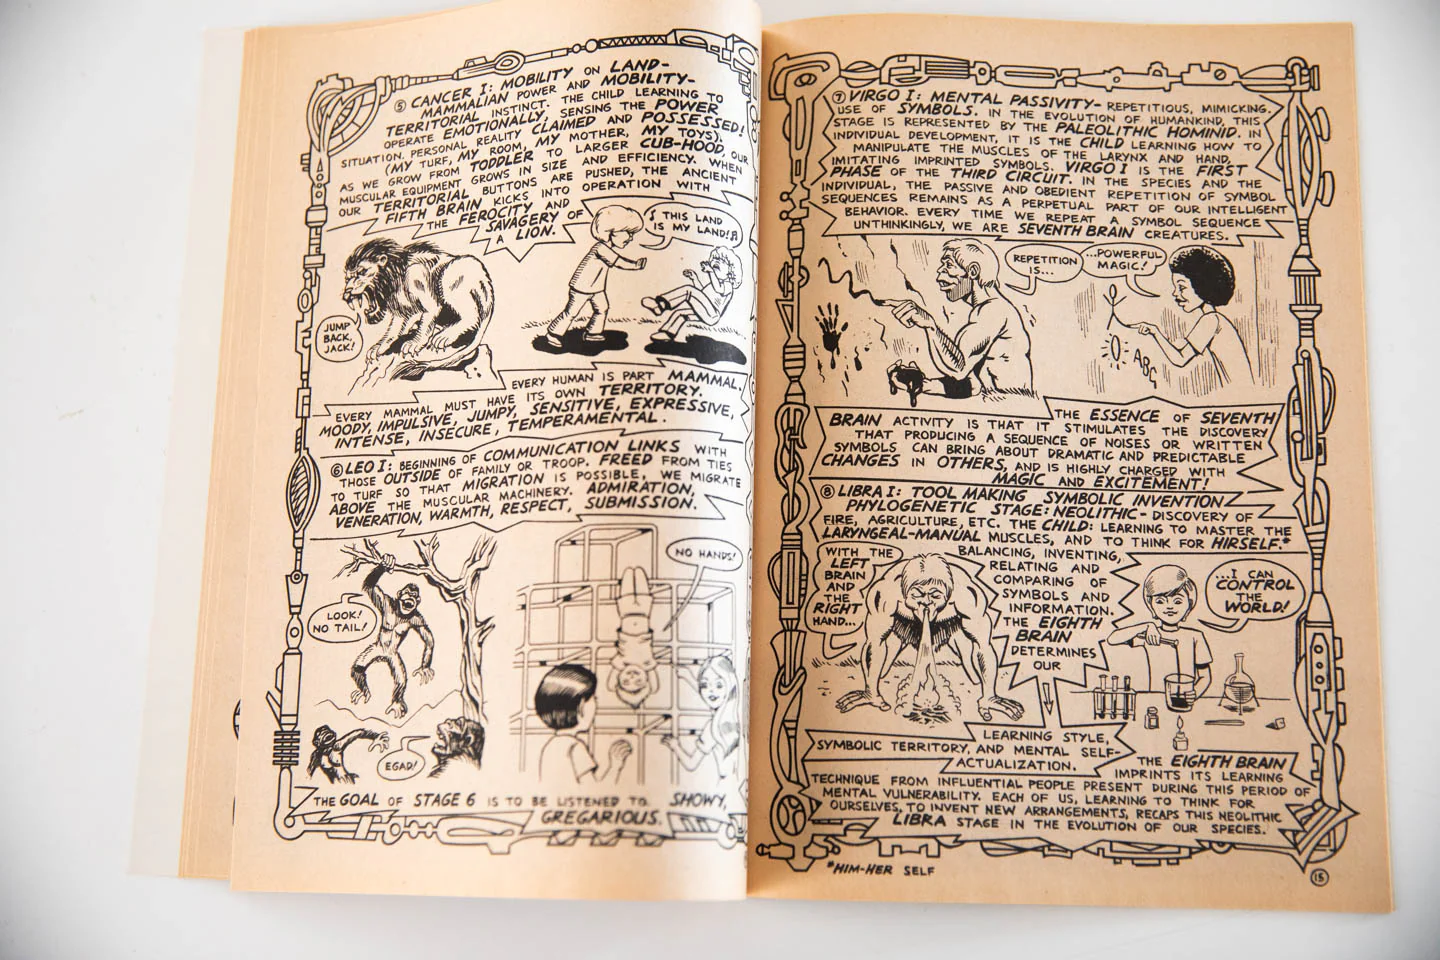 ⑤ CANCER I: MOBILITY ON LAND-
MAMMALIAN POWER AND MOBILITY-
TERRITORIAL INSTINCT. THE CHILD LEARNING TO
OPERATE EMOTIONALLY, SENSING THE POWER
SITUATION. PERSONAL REALITY CLAIMED AND POSSESSED!
(MY TURF, MY ROOM, MY MOTHER, MY TOYS).
AS WE GROW FROM TODDLER TO LARGER CUB-HOOD, OUR
MUSCULAR EQUIPMENT GROWS IN SIZE AND EFFICIENCY. WHEN
OUR TERRITORIAL BUTTONS ARE PUSHED, THE ANCIENT
FIFTH BRAIN KICKS INTO OPERATION WITH
THE FEROCITY AND
SAVAGERY OF
A LION.
JUMP
BACK,
JACK!
♪ THIS LAND
IS MY LAND!♫
EVERY HUMAN IS PART MAMMAL.
EVERY MAMMAL MUST HAVE ITS OWN TERRITORY.
MOODY, IMPULSIVE, JUMPY, SENSITIVE, EXPRESSIVE,
INTENSE, INSECURE, TEMPERAMENTAL.
⑥ LEO I: BEGINNING OF COMMUNICATION LINKS WITH
THOSE OUTSIDE OF FAMILY OR TROOP. FREED FROM TIES
TO TURF SO THAT MIGRATION IS POSSIBLE, WE MIGRATE
ABOVE THE MUSCULAR MACHINERY. ADMIRATION,
VENERATION, WARMTH, RESPECT, SUBMISSION.
LOOK!
NO TAIL!
EGAD!
NO HANDS!
THE GOAL OF STAGE 6 IS TO BE LISTENED TO. SHOWY,
GREGARIOUS.
⑦ VIRGO I: MENTAL PASSIVITY- REPETITIOUS, MIMICKING.
USE OF SYMBOLS. IN THE EVOLUTION OF HUMANKIND, THIS
STAGE IS REPRESENTED BY THE PALEOLITHIC HOMINID. IN
INDIVIDUAL DEVELOPMENT, IT IS THE CHILD LEARNING HOW TO
MANIPULATE THE MUSCLES OF THE LARYNX AND HAND,
IMITATING IMPRINTED SYMBOLS. VIRGO I IS THE FIRST
PHASE OF THE THIRD CIRCUIT. IN THE SPECIES AND THE
INDIVIDUAL, THE PASSIVE AND OBEDIENT REPETITION OF SYMBOL
SEQUENCES REMAINS AS A PERPETUAL PART OF OUR INTELLIGENT
BEHAVIOR. EVERY TIME WE REPEAT A SYMBOL SEQUENCE
UNTHINKINGLY, WE ARE SEVENTH BRAIN CREATURES.
REPETITION
IS...
...POWERFUL
MAGIC!
ABC
THE ESSENCE OF SEVENTH
BRAIN ACTIVITY IS THAT IT STIMULATES THE DISCOVERY
THAT PRODUCING A SEQUENCE OF NOISES OR WRITTEN
SYMBOLS CAN BRING ABOUT DRAMATIC AND PREDICTABLE
CHANGES IN OTHERS, AND IS HIGHLY CHARGED WITH
MAGIC AND EXCITEMENT!
⑧ LIBRA I: TOOL MAKING SYMBOLIC INVENTION
PHYLOGENETIC STAGE: NEOLITHIC- DISCOVERY OF
FIRE, AGRICULTURE, ETC. THE CHILD: LEARNING TO MASTER THE
LARYNGEAL-MANUAL MUSCLES, AND TO THINK FOR HIRSELF.*
WITH THE
LEFT
BRAIN
AND
THE
RIGHT
HAND...
BALANCING, INVENTING,
RELATING AND
COMPARING OF
SYMBOLS AND
INFORMATION.
THE EIGHTH
BRAIN
DETERMINES
OUR
...I CAN
CONTROL
THE
WORLD!
LEARNING STYLE,
SYMBOLIC TERRITORY, AND MENTAL SELF-
ACTUALIZATION.
THE EIGHTH BRAIN
IMPRINTS ITS LEARNING
TECHNIQUE FROM INFLUENTIAL PEOPLE PRESENT DURING THIS PERIOD OF
MENTAL VULNERABILITY. EACH OF US, LEARNING TO THINK FOR
OURSELVES, TO INVENT NEW ARRANGEMENTS, RECAPS THIS NEOLITHIC
LIBRA STAGE IN THE EVOLUTION OF OUR SPECIES.
*HIM-HER SELF
15